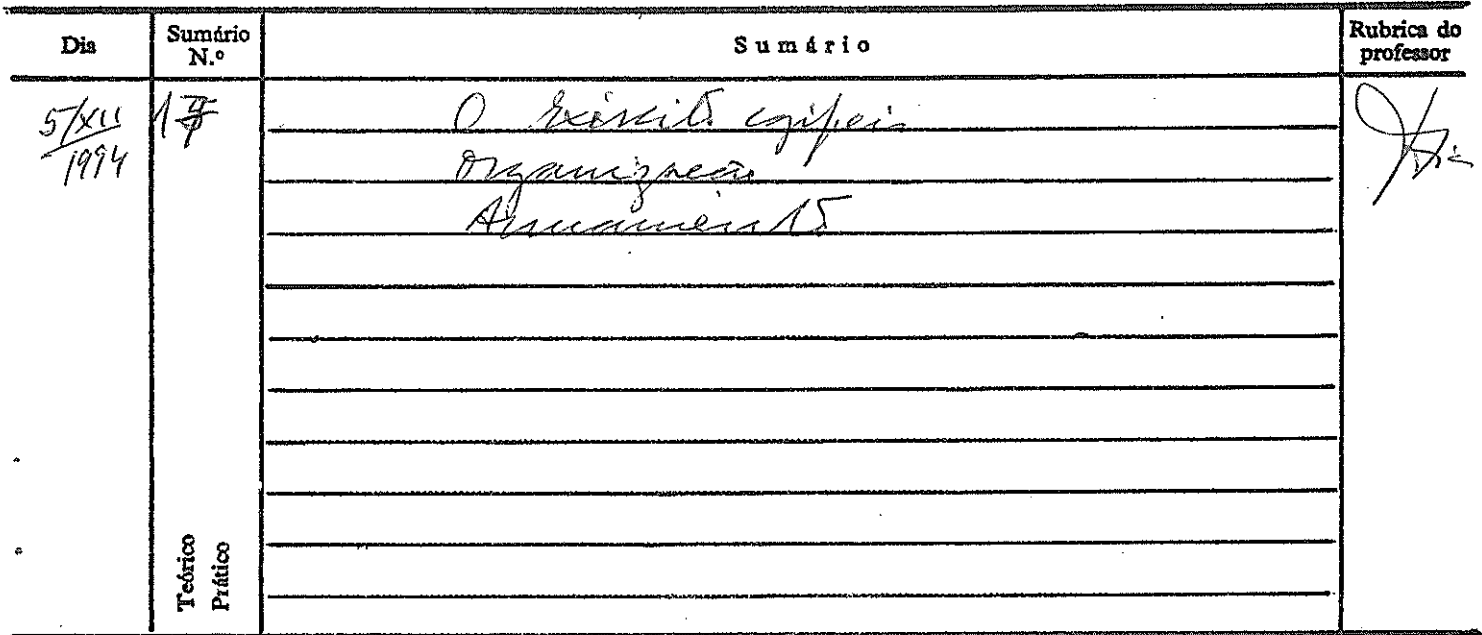 Dia Sumário N.º Sumário Rubrica do professor
5/XII/1994 O Exército egípcio
Organização
Armamento
Teórico
Prático